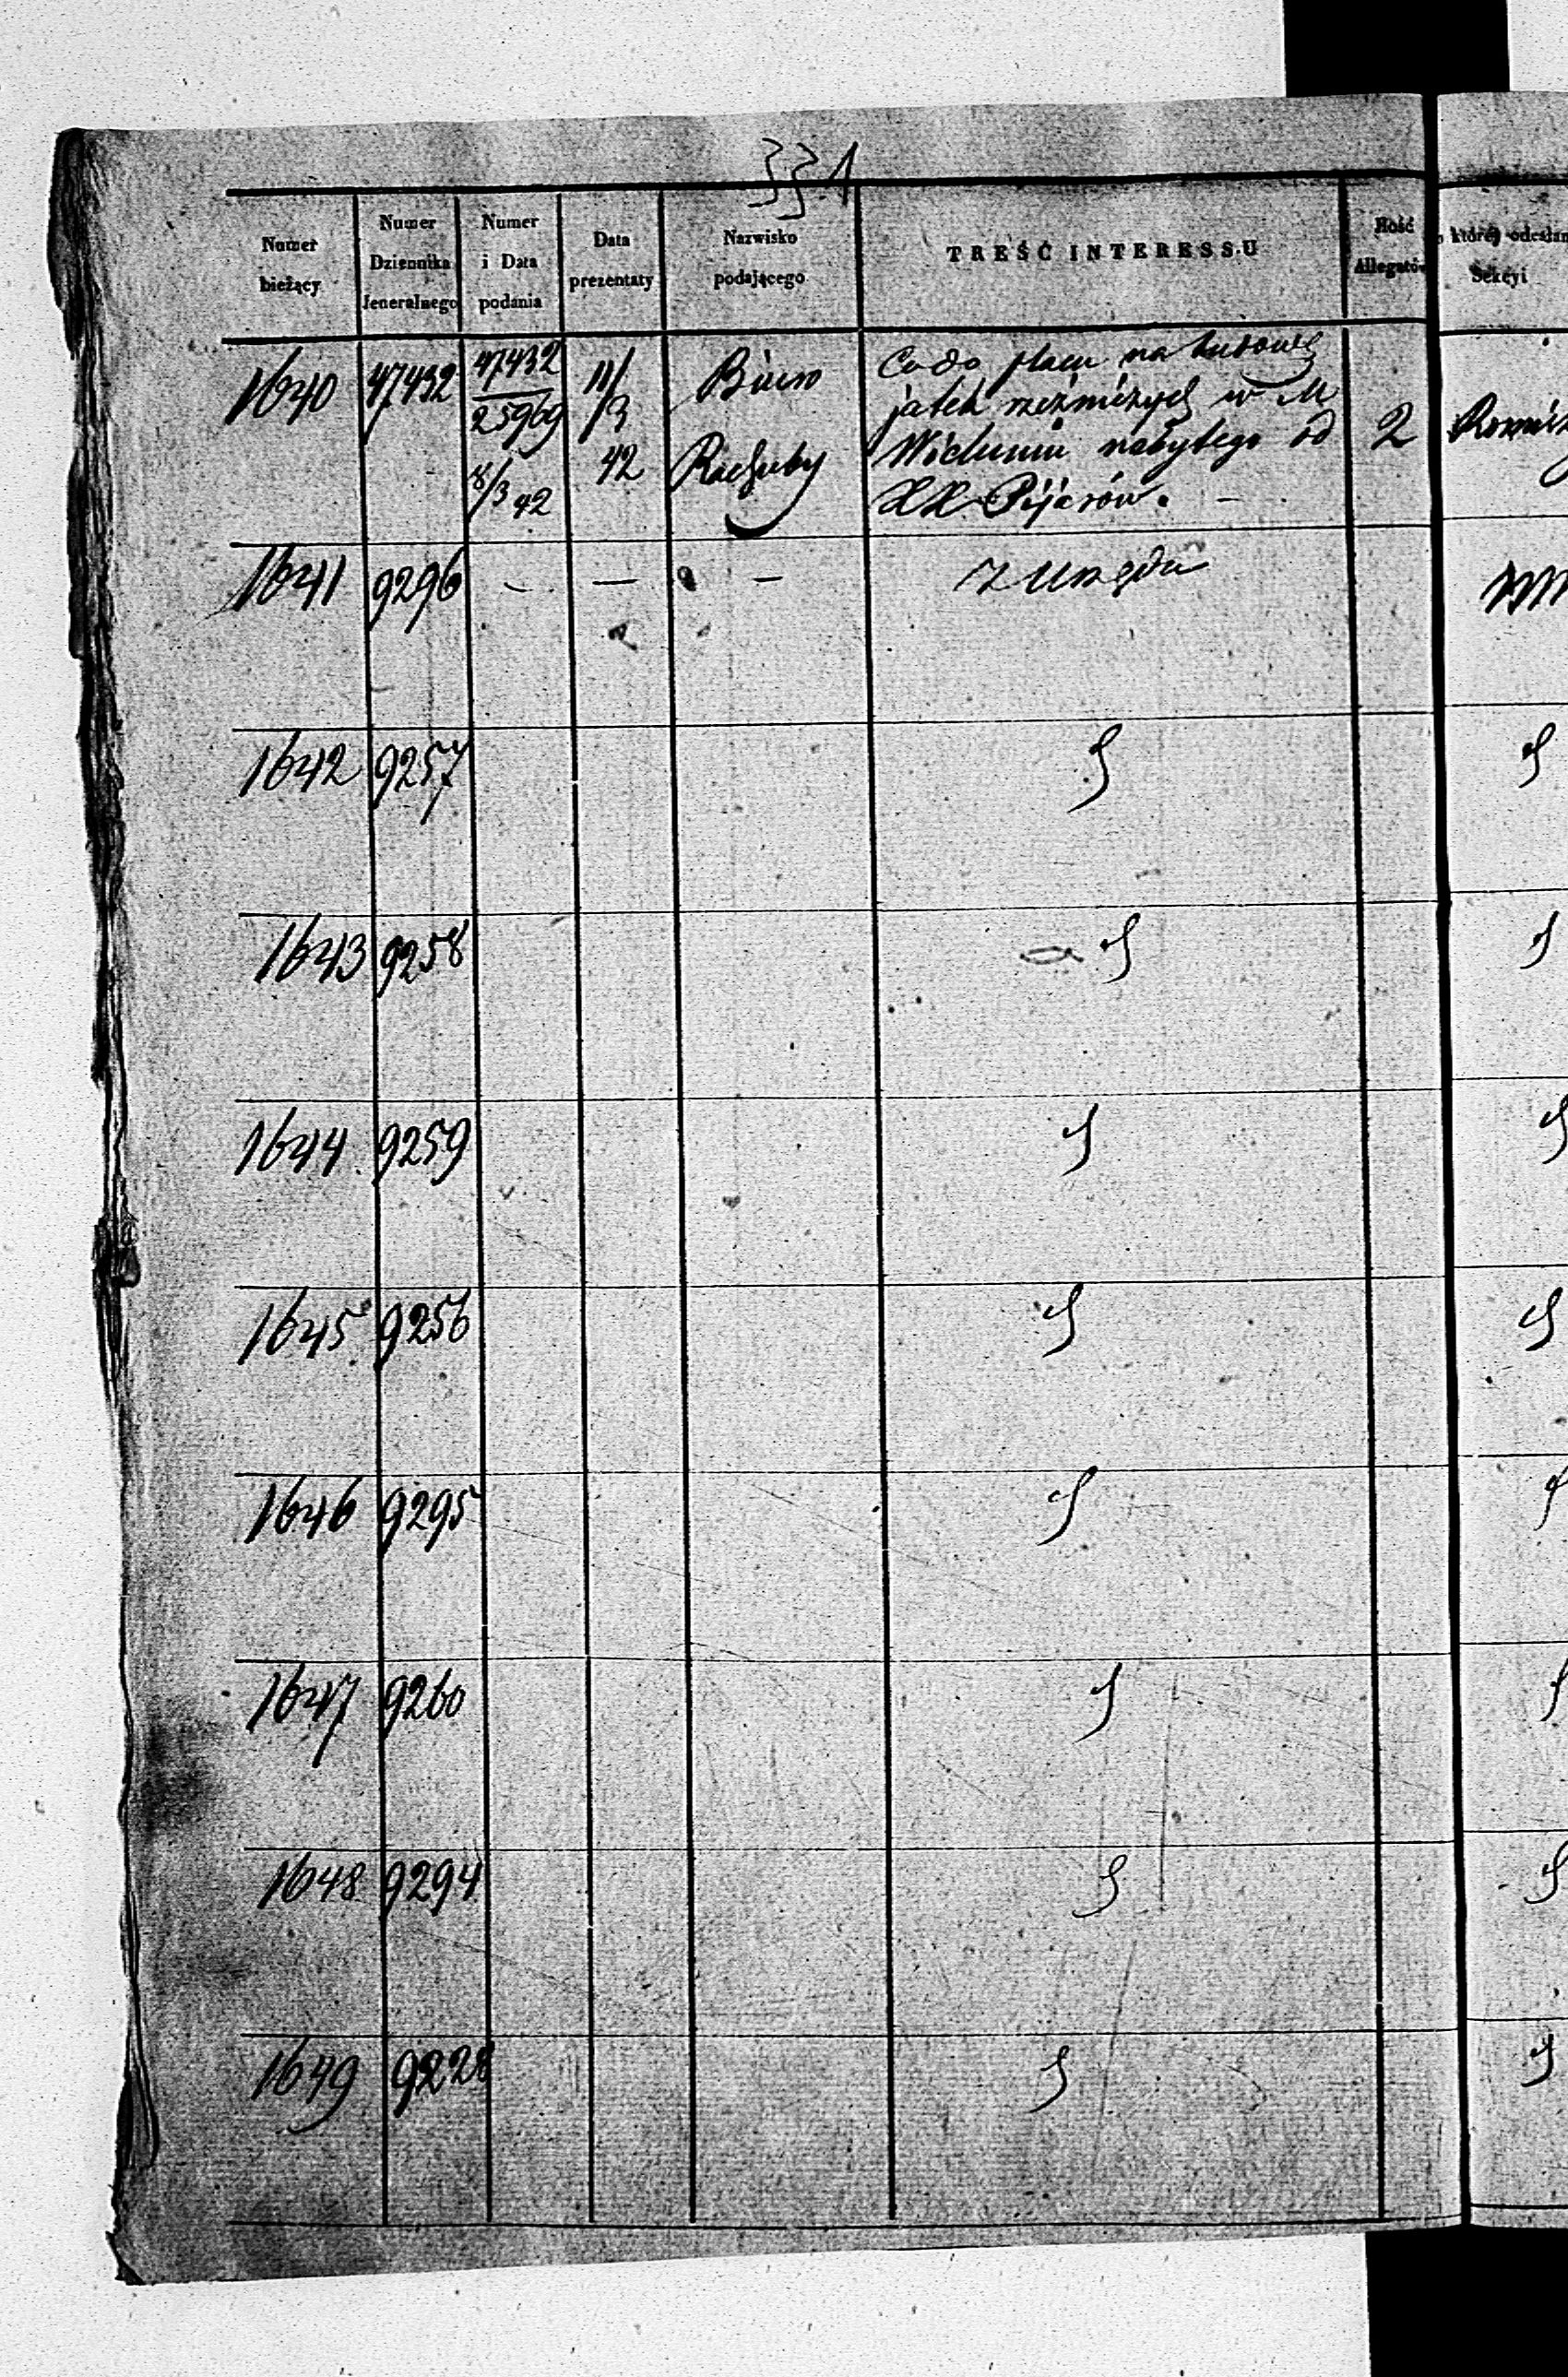 331
Numer bieżący
Numer Dziennika Jeneralnego
Numer i Data podania
Data prezentaty
Nazwisko podającego
TREŚĆ INTERESSU
Ilość Allegatów
którey odesłan
Sekcyi
1640 47432 47432/25969 8/3 42 11/3 42 Biuro Rachuby
Co do placu na budowę
jatek rzeźniczych w M
Wieluniu nabytego od
XX Pijarów. —
2
1641 9296 — — — z urzędu
1642 9257
1643 9258
1644 9259
1645 9256
1646 9295
1647 9260
1648 9294
1649 9228